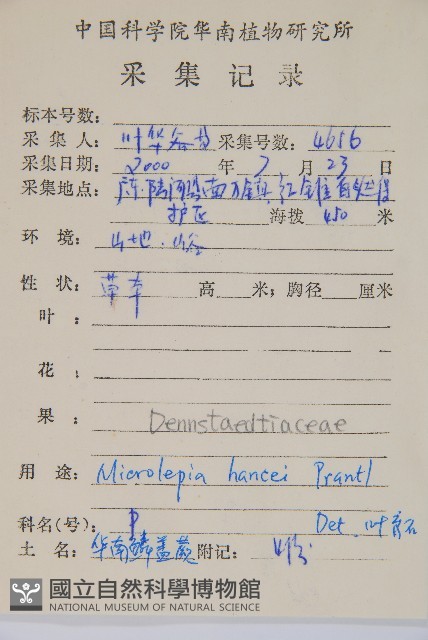 中国科学院华南植物研究所
采集记录
标本号数:
采集人: 叶华谷 采集号数: 4616
采集日期: 2000 年 7 月 23 日
采集地点: 广东.陆河 南万 红 自
护区 海拨 450 米
环境: 山地.山谷
性状: 草本 高 米; 胸径 厘米
叶:
花:
果: Dennstaedtiaceae
用途: Microlepia hancei Prantl
科名(号): P Det. 叶育石
土名: 华南鳞盖蕨 附记: 4份
國立自然科學博物館
NATIONAL MUSEUM OF NATURAL SCIENCE